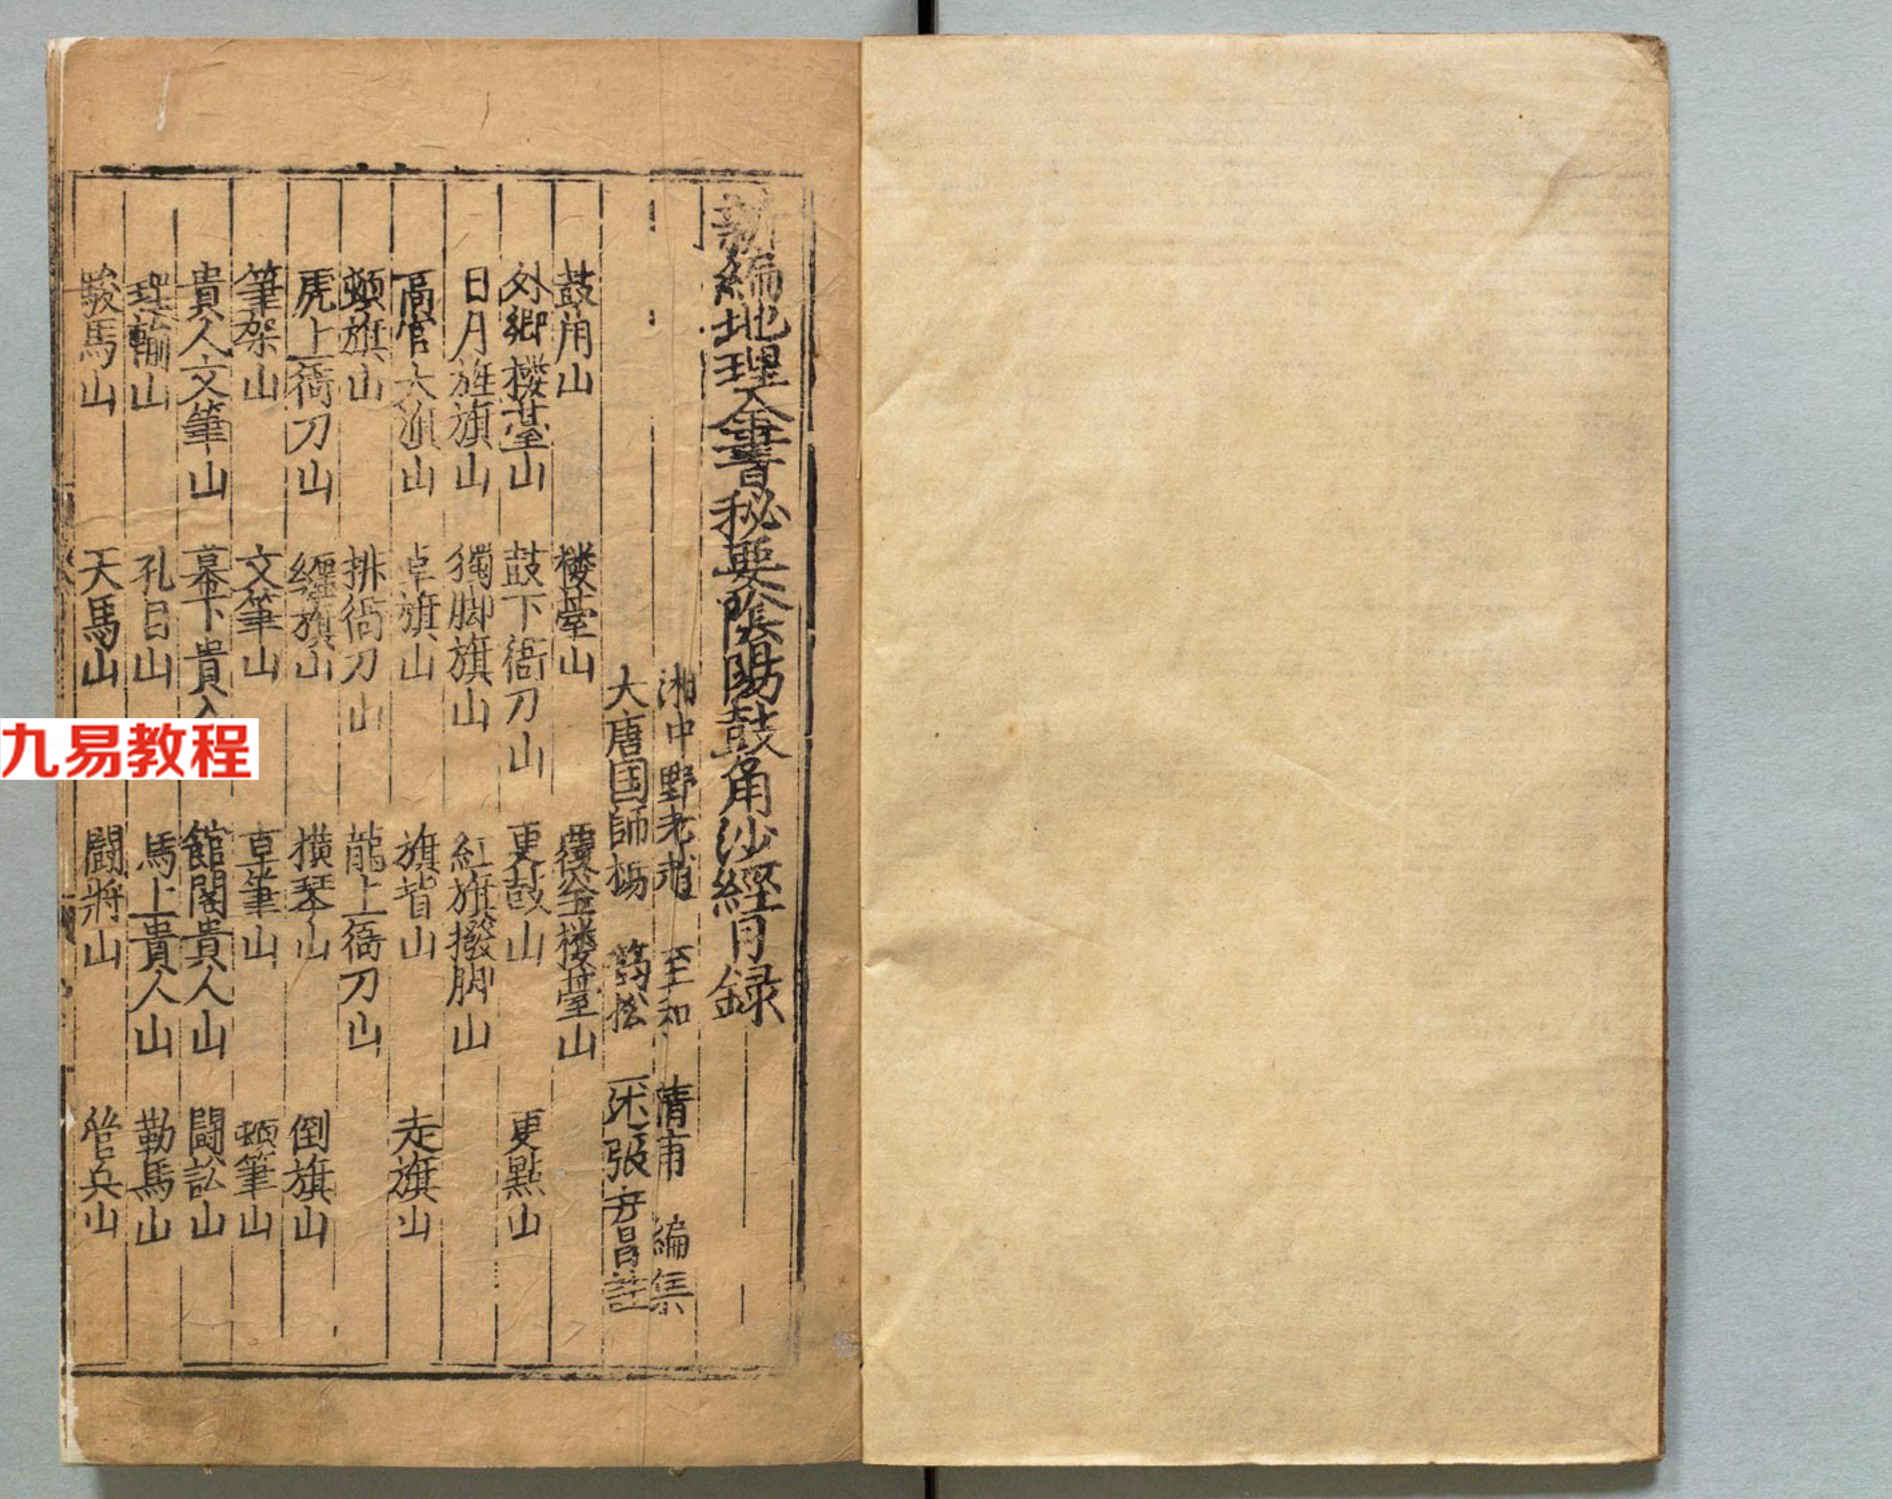 新編地理全書秘要陰陽鼓角沙經目録
湘中野老趙 至和 清甫 編集
大唐国師楊 筠松 張宗昌註
鼓角山 楼䑓山 覆釜楼䑓山
外郷楼䑓山 鼓下衙刀山 更鼓山 更點山
日月旌旗山 獨脚旗山 紅旗撥脚山
高官大旗山 卓旗山 旗山 走旗山
頓旗山 排衙刀山 龍上衙刀山
虎上衙刀山 纒旗山 横琴山 倒旗山
筆架山 文筆山 卓筆山 頓筆山
貴人文筆山 幕下貴人 館閣貴人山 鬪訟山
山 孔目山 馬上貴人山 勒馬山
駿馬山 天馬山 鬪將山 管兵山
九易教程